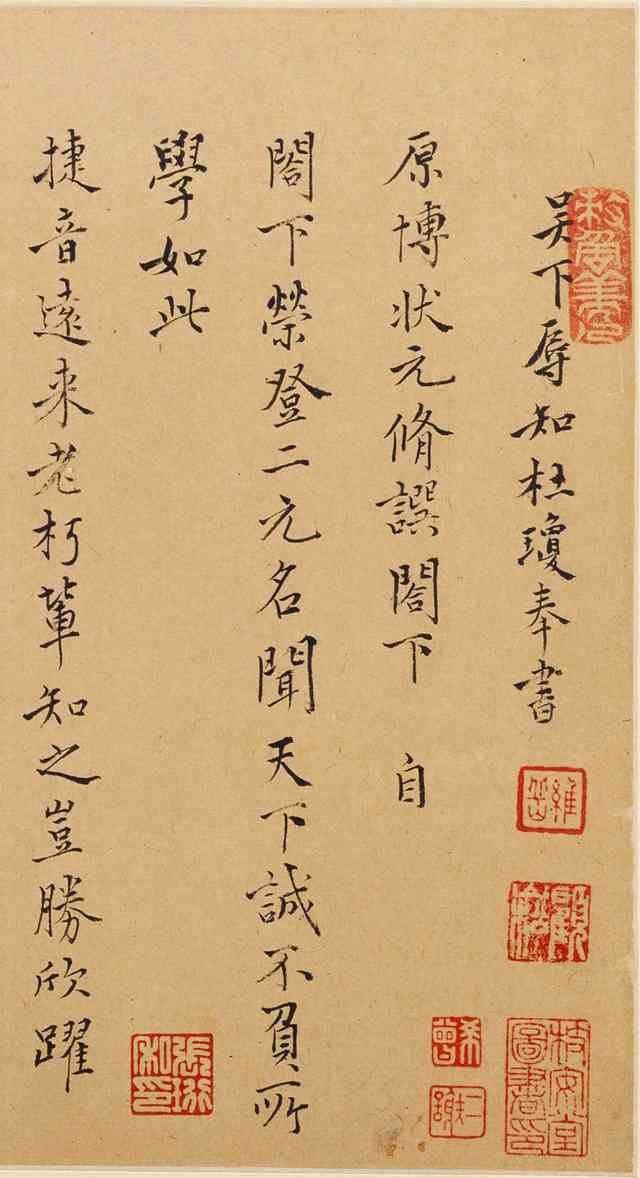 吳下辱知杜瓊奉書
原博狀元脩譔閤下 自
閤下榮登二元名聞天下誠不負所
學如此
捷音遠來老朽輩知之豈勝欣躍